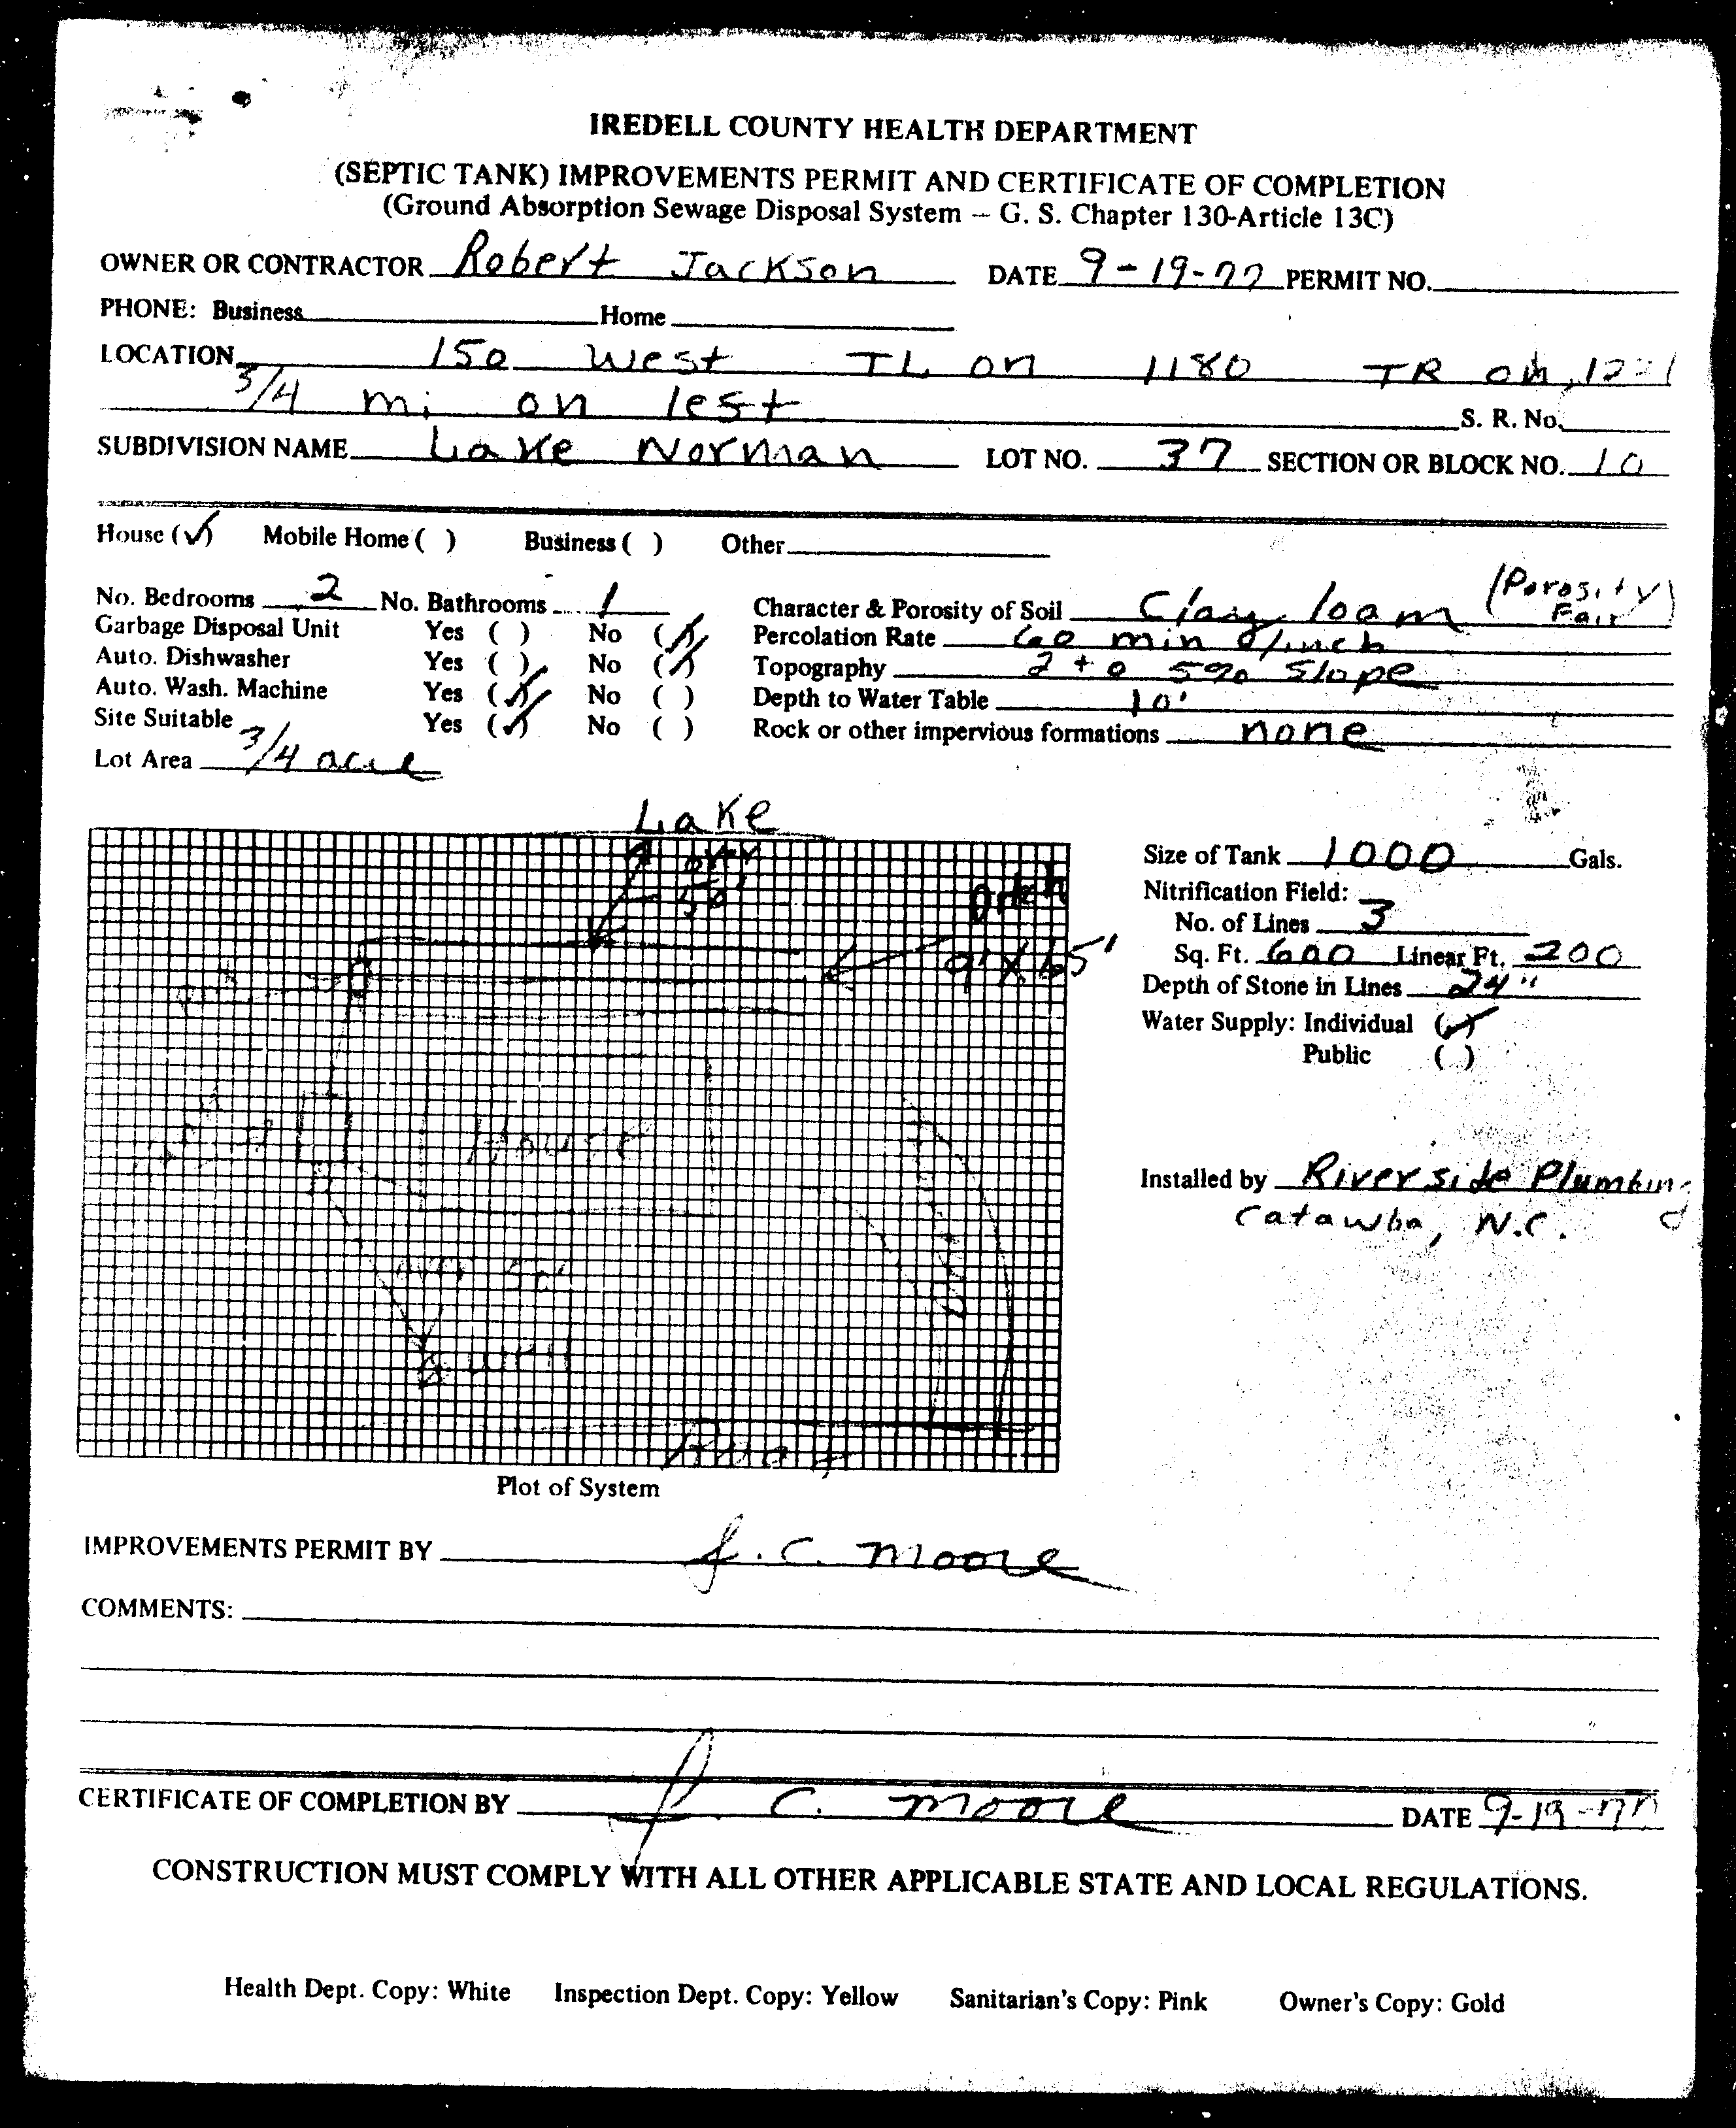 IREDELL COUNTY HEALTH DEPARTMENT
(SEPTIC TANK) IMPROVEMENTS PERMIT AND CERTIFICATE OF COMPLETION
(Ground Absorption Sewage Disposal System -- G. S. Chapter 130-Article 13C)
OWNER OR CONTRACTOR Robert Jackson DATE 9-19-77 PERMIT NO.
PHONE: Business Home
LOCATION 150 West TL on 1180 TR on
3/4 mi on lest S. R. No.
SUBDIVISION NAME Lake Norman LOT NO. 37 SECTION OR BLOCK NO. 10
House (✓) Mobile Home ( ) Business ( ) Other
No. Bedrooms 2 No. Bathrooms 1 Character & Porosity of Soil Clay loam (Porosity Fair)
Garbage Disposal Unit Yes ( ) No (✓) Percolation Rate 60 min /inch
Auto. Dishwasher Yes ( ) No (✓) Topography 2 to 5% Slope
Auto. Wash. Machine Yes (✓) No ( ) Depth to Water Table 10'
Site Suitable Yes (✓) No ( ) Rock or other impervious formations none
Lot Area 3/4 acre
Lake
over
50'
Ditch
9' X 65'
House
over 50'
Well
Size of Tank 1000 Gals.
Nitrification Field:
No. of Lines 3
Sq. Ft. 600 Linear Ft. 200
Depth of Stone in Lines 24"
Water Supply: Individual (✓)
Public ( )
Installed by Riverside Plumbing
Catawba, N.C.
Plot of System
IMPROVEMENTS PERMIT BY J. C. Moore
COMMENTS:
CERTIFICATE OF COMPLETION BY J. C. Moore DATE 9-19-77
CONSTRUCTION MUST COMPLY WITH ALL OTHER APPLICABLE STATE AND LOCAL REGULATIONS.
Health Dept. Copy: White Inspection Dept. Copy: Yellow Sanitarian's Copy: Pink Owner's Copy: Gold